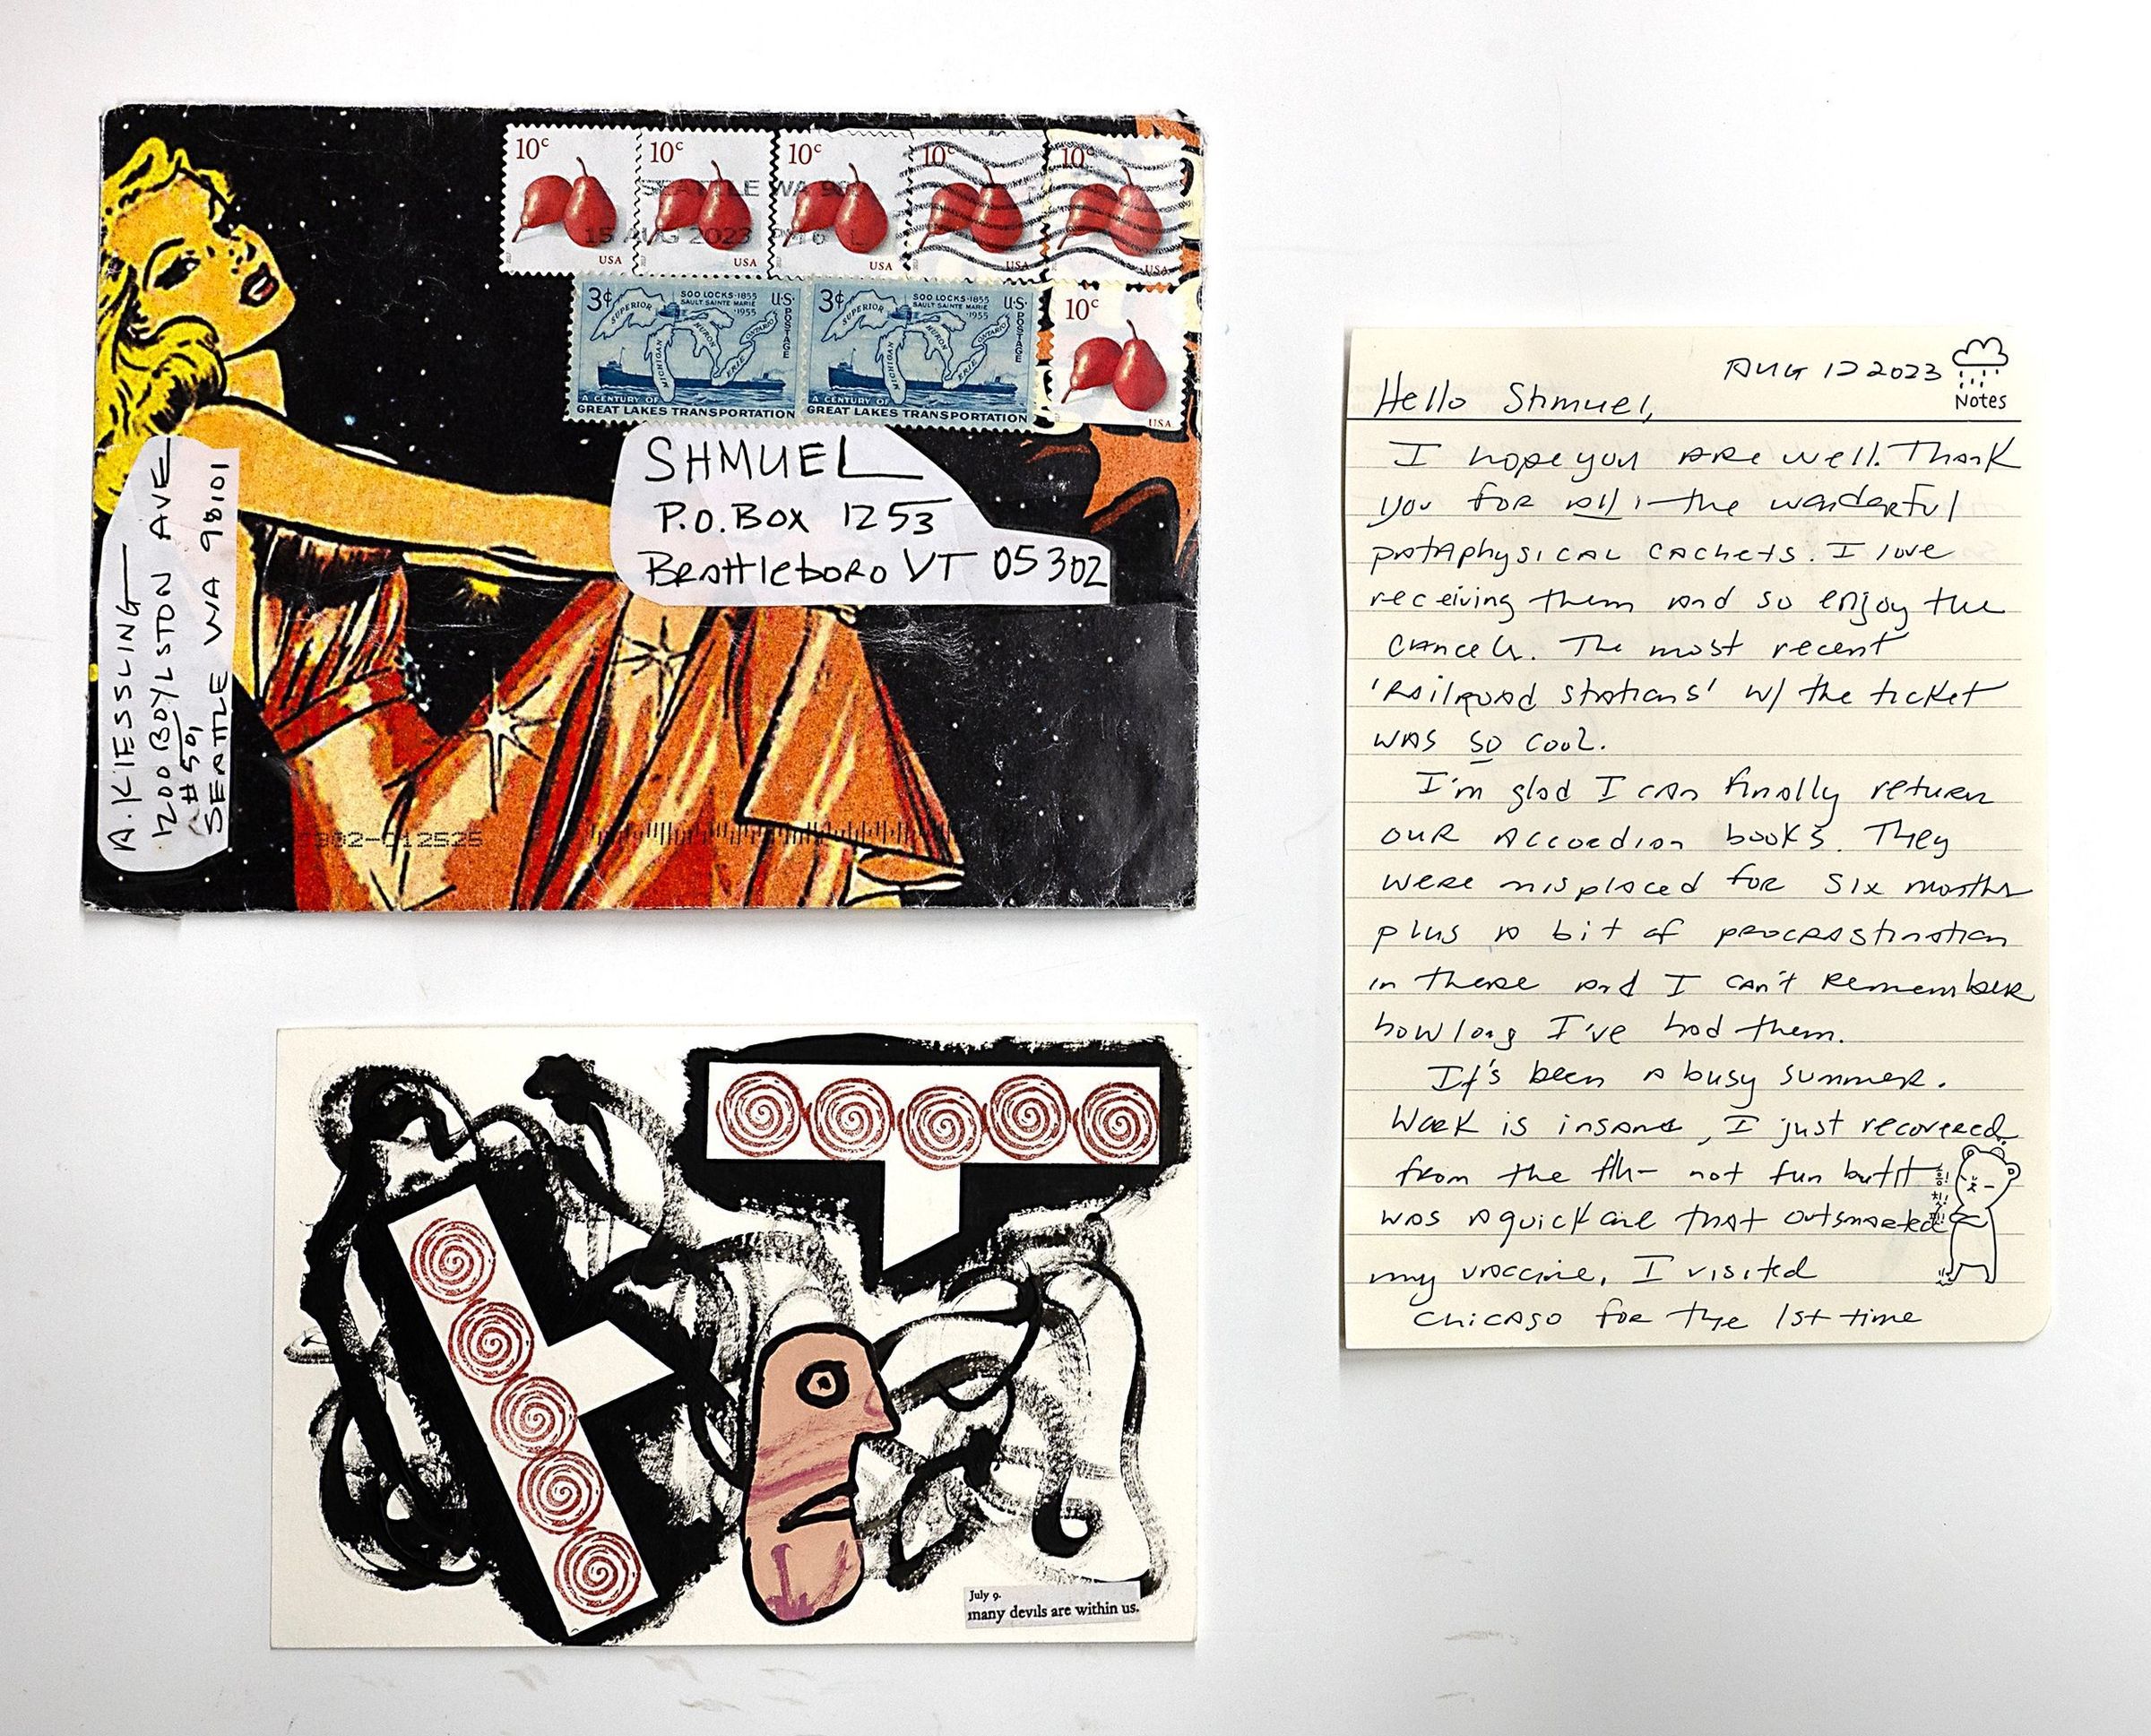 10c
10c
10c
10c
10c
SEATTLE WA
15 AUG 2023 PM 6 L
USA
USA
USA
USA
USA
3¢
SOO LOCKS·1855
SAULT SAINTE MARIE
1955
U.S. POSTAGE
SUPERIOR
HURON
ONTARIO
MICHIGAN
ERIE
A CENTURY OF
GREAT LAKES TRANSPORTATION
3¢
SOO LOCKS·1855
SAULT SAINTE MARIE
1955
U.S. POSTAGE
SUPERIOR
HURON
ONTARIO
MICHIGAN
ERIE
A CENTURY OF
GREAT LAKES TRANSPORTATION
10c
USA
SHMUEL
P.O. Box 1253
Brattleboro VT 05302
A. KIESSLING
1200 BOYLSTON AVE
#501
SEATTLE WA 98101
302-012525
July 9.
many devils are within us.
AUG 12 2023
Notes
Hello Shmuel,
I hope you are well. Thank
you for all the wonderful
pataphysical cachets. I love
receiving them and so enjoy the
cancels. The most recent
'Railroad Stations' w/ the ticket
was so cool.
I'm glad I can finally return
our accordion books. They
were misplaced for six months
plus a bit of procrastination
in there and I can't remember
how long I've had them.
It's been a busy summer.
Work is insane, I just recovered
from the flu - not fun but it
was a quick one that outsmarted
my vaccine. I visited
Chicago for the 1st time